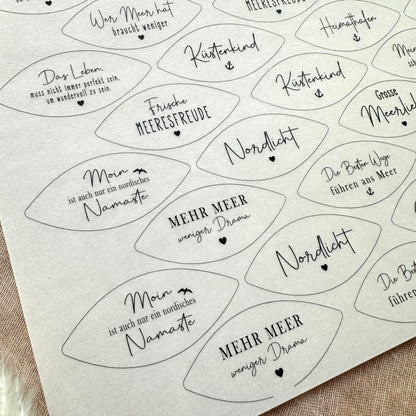 MEERESFREUDE
Wer Meer hat
braucht weniger
Heimathafen
Küstenkind
Das Leben.
muss nicht immer perfekt sein,
um wundervoll zu sein.
Küstenkind
Grosse
Meerliebe
Frische
MEERESFREUDE
Nordlicht
Die Besten Wege
führen ans Meer
Moin
ist auch nur ein nordisches
Namaste
MEHR MEER
weniger Drama
Nordlicht
Die Besten
führen ans
Moin
ist auch nur ein nordisches
Namaste
MEHR MEER
weniger Drama